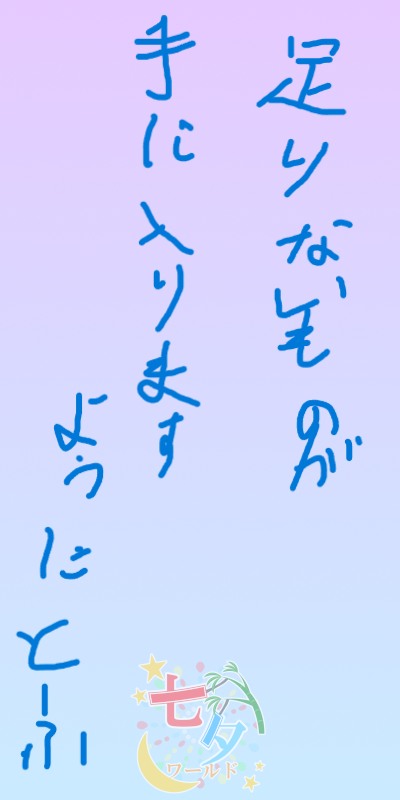 足りないものが
手に入ります
ように
とーふ
七夕
ワールド